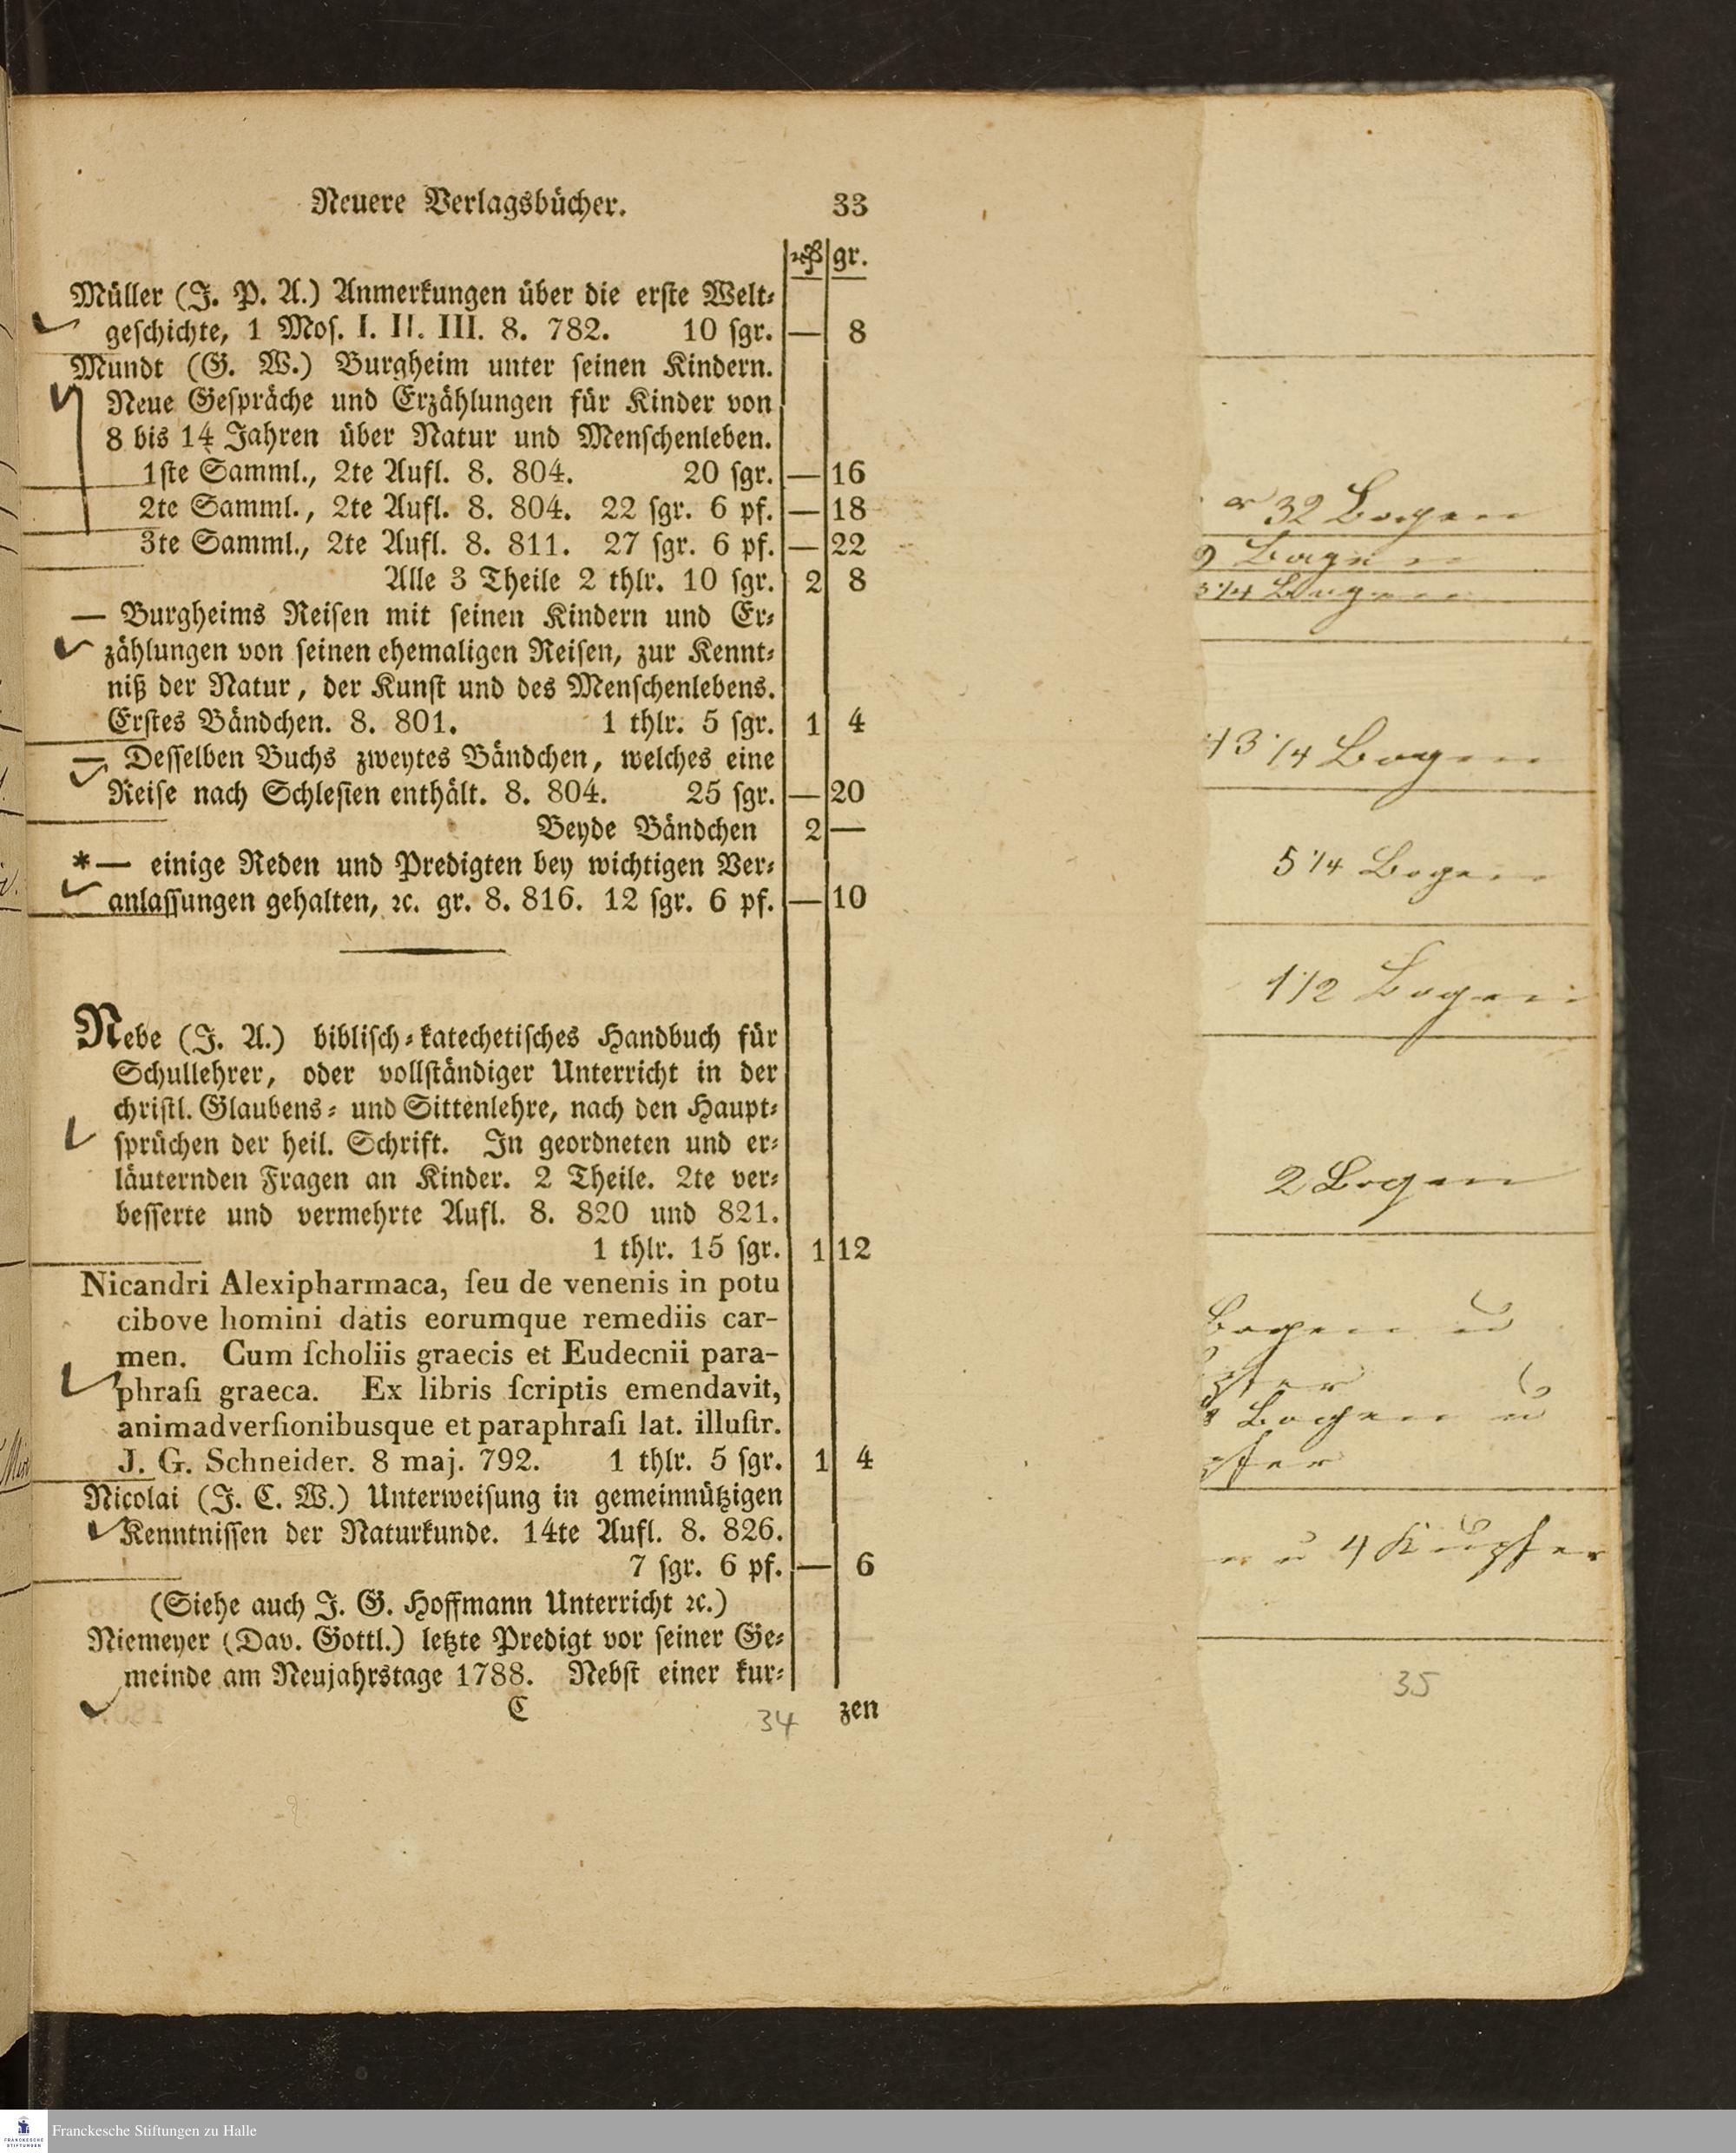 Neuere Verlagsbücher. 33
rthl gr.
Müller (J. P. A.) Anmerkungen über die erste Welt⸗
geschichte, 1 Mos. I. II. III. 8. 782. 10 sgr. — 8
Mundt (G. W.) Burgheim unter seinen Kindern.
Neue Gespräche und Erzählungen für Kinder von
8 bis 14 Jahren über Natur und Menschenleben.
1ste Samml., 2te Aufl. 8. 804. 20 sgr. — 16
2te Samml., 2te Aufl. 8. 804. 22 sgr. 6 pf. — 18
3te Samml., 2te Aufl. 8. 811. 27 sgr. 6 pf. — 22
Alle 3 Theile 2 thlr. 10 sgr. 2 8
— Burgheims Reisen mit seinen Kindern und Er⸗
zählungen von seinen ehemaligen Reisen, zur Kennt⸗
niß der Natur, der Kunst und des Menschenlebens.
Erstes Bändchen. 8. 801. 1 thlr. 5 sgr. 1 4
— Desselben Buchs zweytes Bändchen, welches eine
Reise nach Schlesien enthält. 8. 804. 25 sgr. — 20
Beyde Bändchen 2 —
*— einige Reden und Predigten bey wichtigen Ver⸗
anlassungen gehalten, ꝛc. gr. 8. 816. 12 sgr. 6 pf. — 10
Nebe (J. A.) biblisch⸗katechetisches Handbuch für
Schullehrer, oder vollständiger Unterricht in der
christl. Glaubens⸗ und Sittenlehre, nach den Haupt⸗
sprüchen der heil. Schrift. In geordneten und er⸗
läuternden Fragen an Kinder. 2 Theile. 2te ver⸗
besserte und vermehrte Aufl. 8. 820 und 821.
1 thlr. 15 sgr. 1 12
Nicandri Alexipharmaca, ſeu de venenis in potu
cibove homini datis eorumque remediis car-
men. Cum ſcholiis graecis et Eudecnii para-
phraſi graeca. Ex libris ſcriptis emendavit,
animadverſionibusque et paraphraſi lat. illuſtr.
J. G. Schneider. 8 maj. 792. 1 thlr. 5 sgr. 1 4
Nicolai (J. C. W.) Unterweisung in gemeinnützigen
Kenntnissen der Naturkunde. 14te Aufl. 8. 826.
7 sgr. 6 pf. — 6
(Siehe auch J. G. Hoffmann Unterricht ꝛc.)
Niemeyer (Dav. Gottl.) letzte Predigt vor seiner Ge⸗
meinde am Neujahrstage 1788. Nebst einer kur⸗
C 34 zen
32 Bogen
Bogen
Bogen
3/4 Bogen
5 1/4 Bogen
1 1/2 Bogen
2 Bogen
Bogen u
Bogen u
u 4 Kupfer
35
Franckesche Stiftungen zu Halle